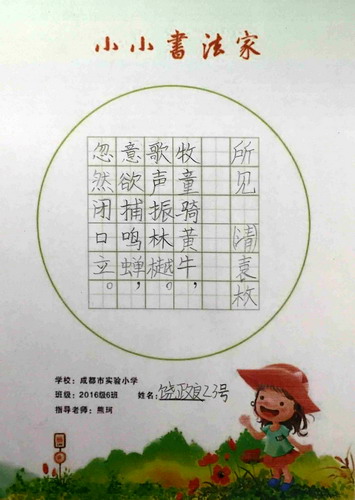 小小書法家
所见 清 袁枚
牧童骑黄牛，
歌声振林樾。
意欲捕鸣蝉，
忽然闭口立。
学校：成都市实验小学
班级：2016级6班 姓名：饶政良23号
指导老师：熊珂